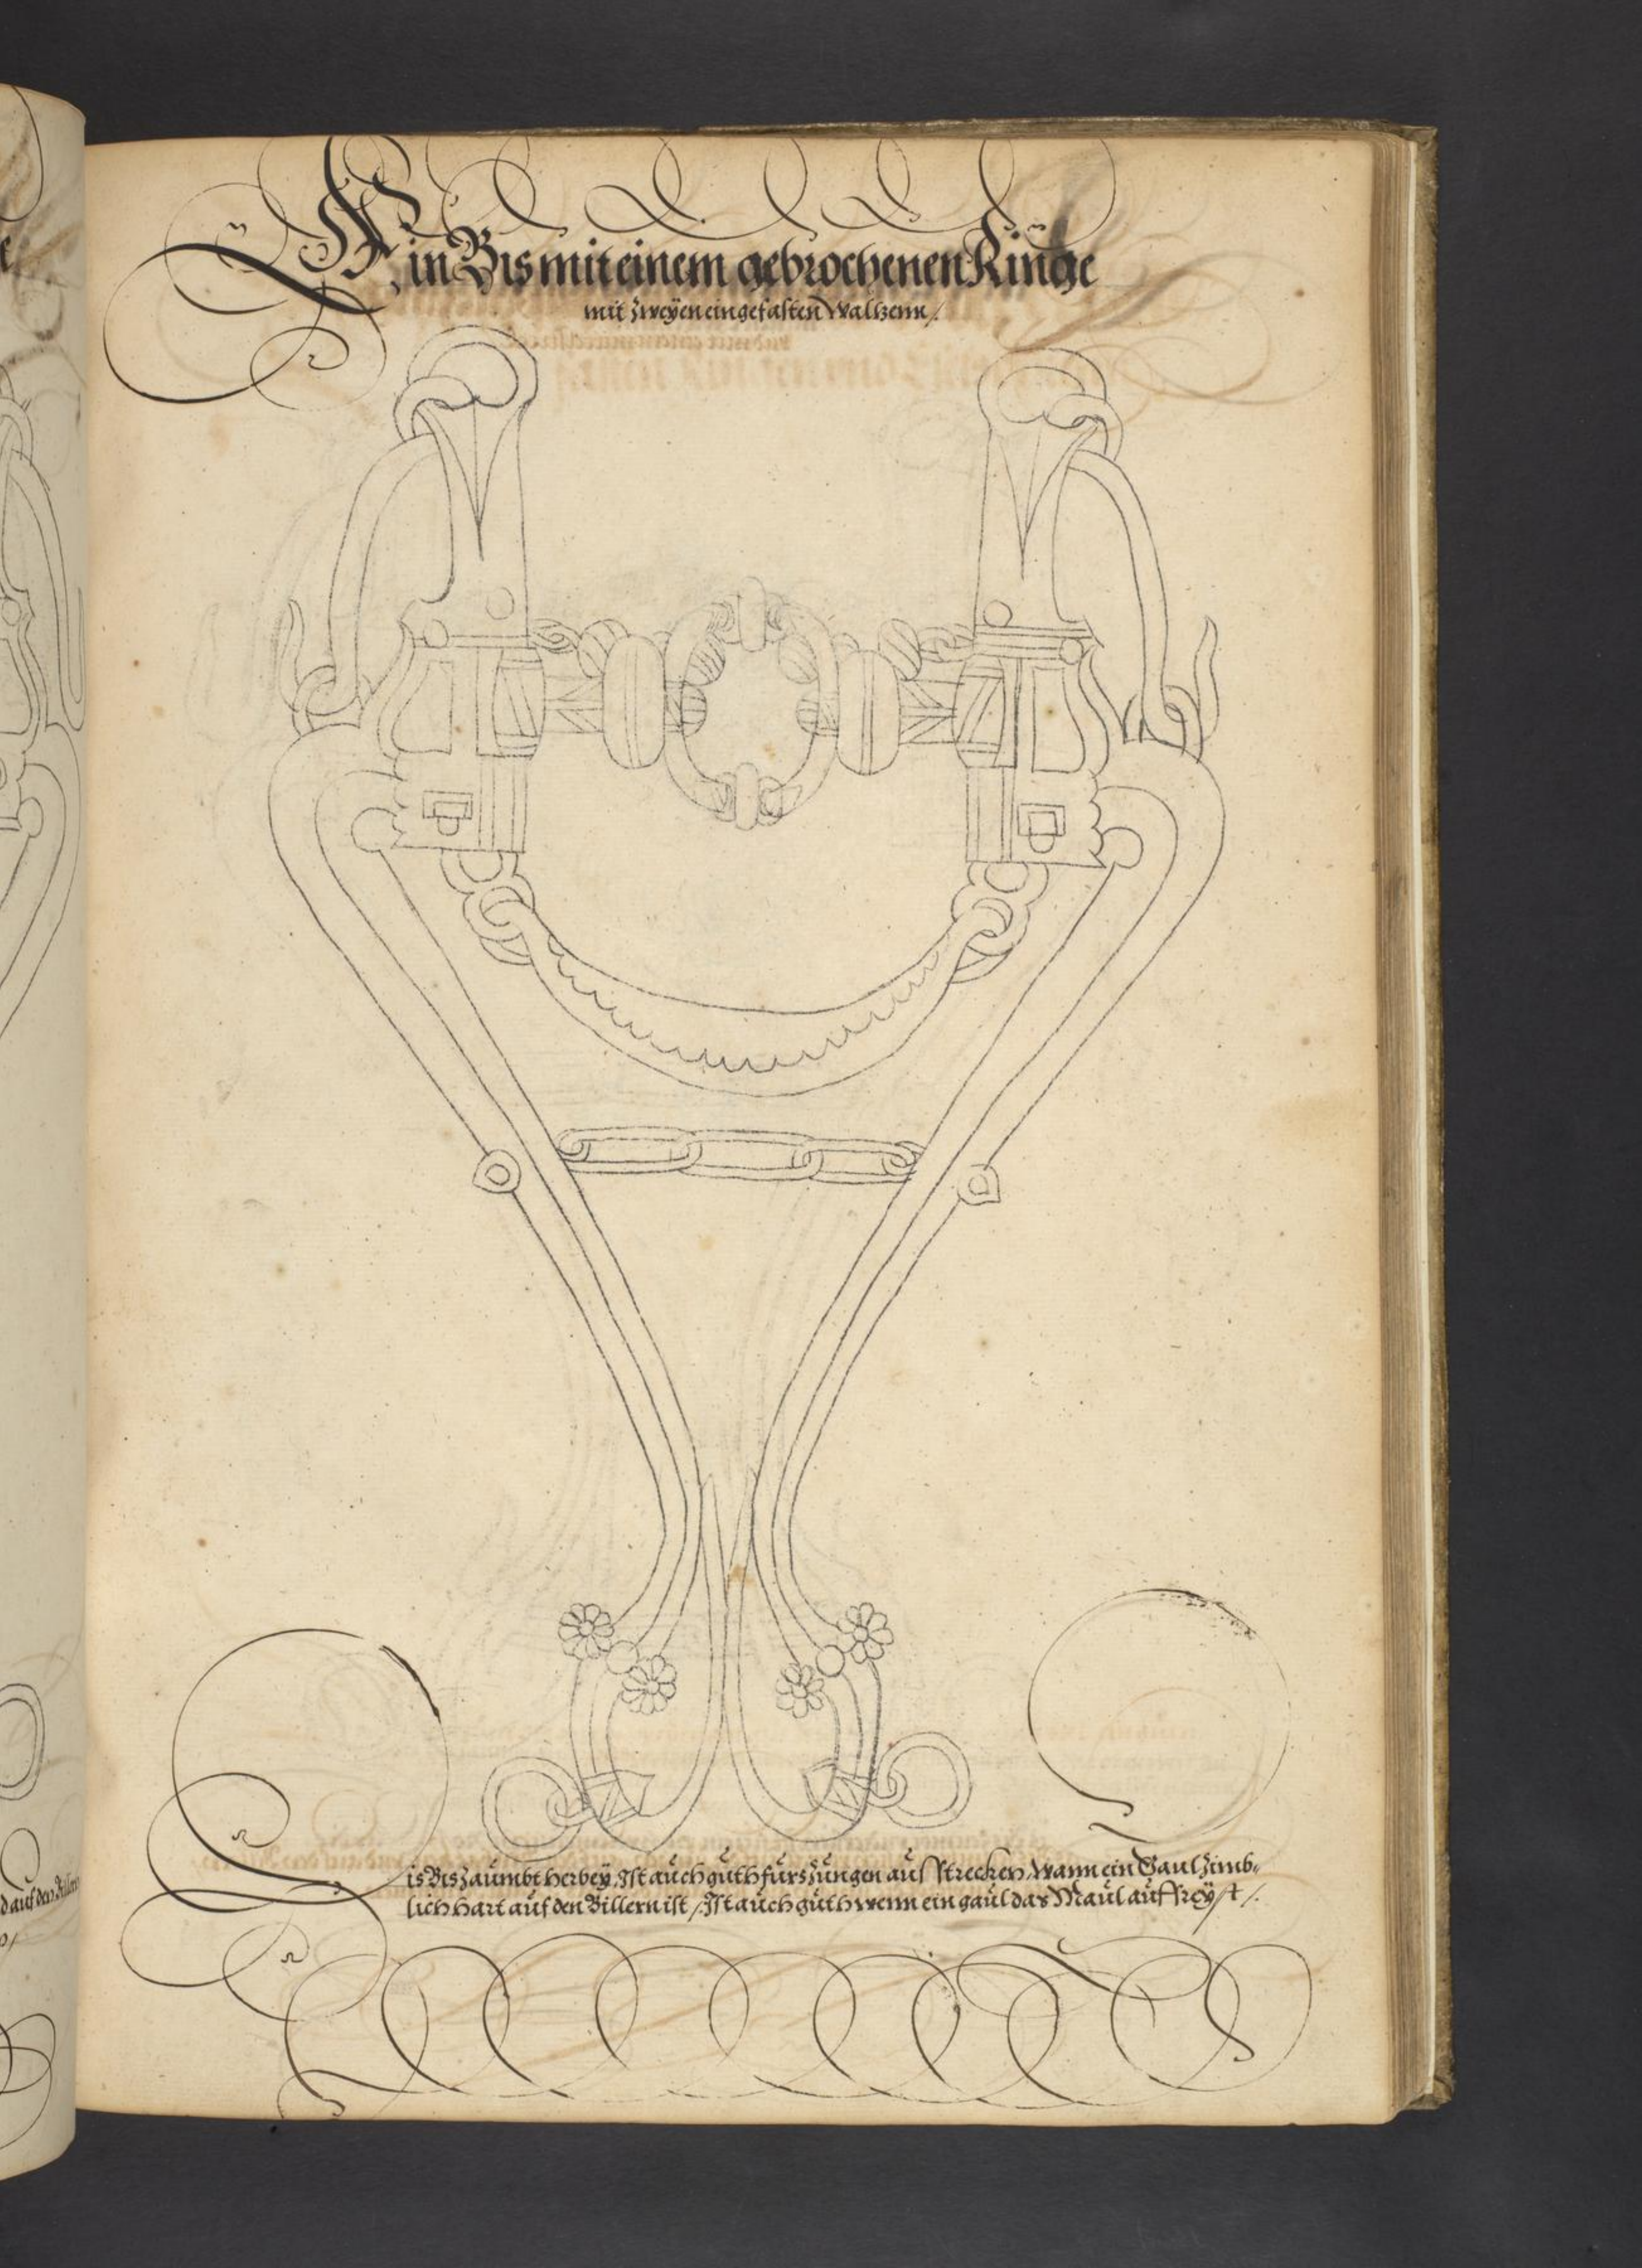 Ein Bis mit einem gebrochenen Ringe
mit zweÿen eingefasten Waltzenn /.
Dis Bis zaumbt herbeÿ, Ist auch guth fürs zungen aus strecken, Wann ein Gaul zimb-
lich hart auf den Billern ist /. Ist auch guth wenn ein gaul das Maul auffreÿst /.
d auf den Billern